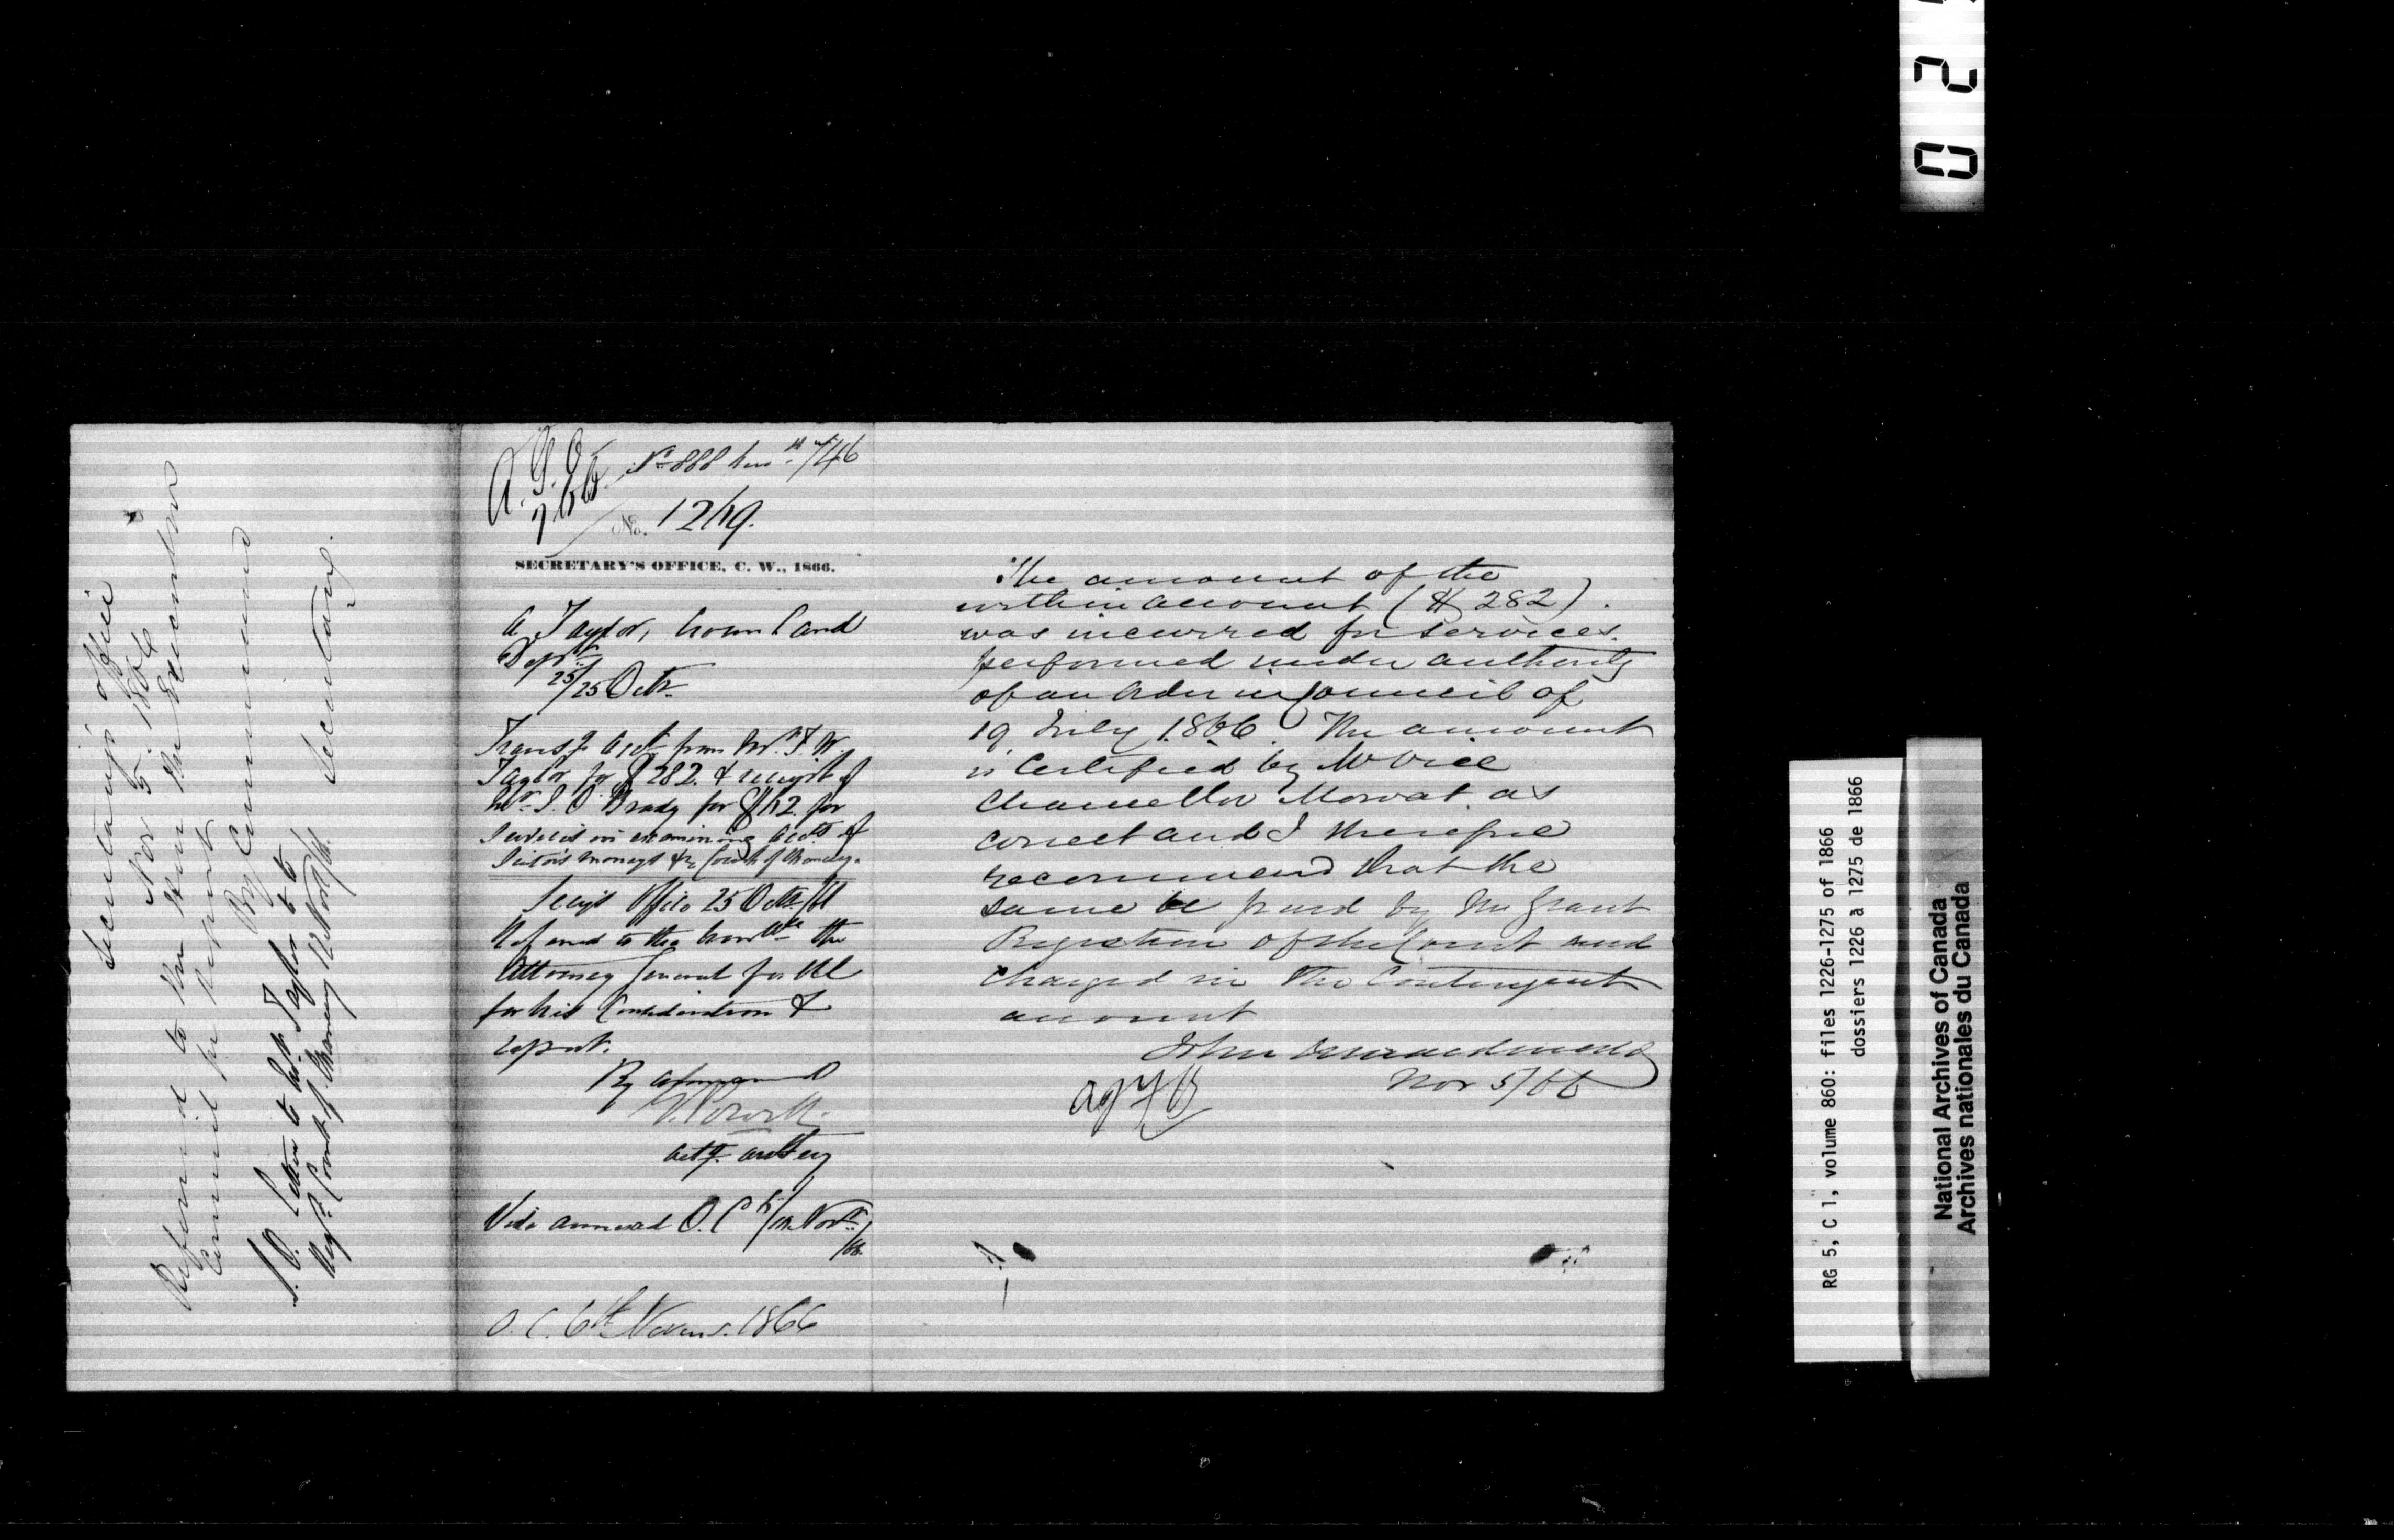 Secretary's Office
Nov 5. 1866
Referred to the Hon the Executive
Council for Report
By Command
Secretary.
S. O. Letter to
Taylor
Court of Chancery 12 Nov/66.
A. G. O.
766
No 888
No. 1269.
SECRETARY'S OFFICE, C. W., 1866.
A Taylor, Crown Land
Dept
25/25 Octr.
Transg. Acct from Mr. T. W.
Taylor for $282. & receipt of
Mr. J. O. Brady for $62. for
Services in examining Accts of
Suitors moneys &c Court of Chancery.
Secy's Office 25 Octr /66
Referred to the Honble the
Attorney General for UC
for his Consideration &
report.
By Command
Actg. Asst Secy
Vide annexed O. C. Novr
/66.
O. C. 6th Novemr. 1866
The amount of the
within account ($282).
was incurred for services.
performed under authority
of an Order in Council of
19 July 1866. The amount
is Certified by Mr Vice
Chancellor Mowat. as
correct and I therefore
recommend that the
same be paid by Mr Grant
Registrar of the Court and
charged in the Contingent
account
John A Macdonald
Nov 5/66
0 2
RG 5, C 1, volume 860: files 1226-1275 of 1866
dossiers 1226 à 1275 de 1866
National Archives of Canada
Archives nationales du Canada